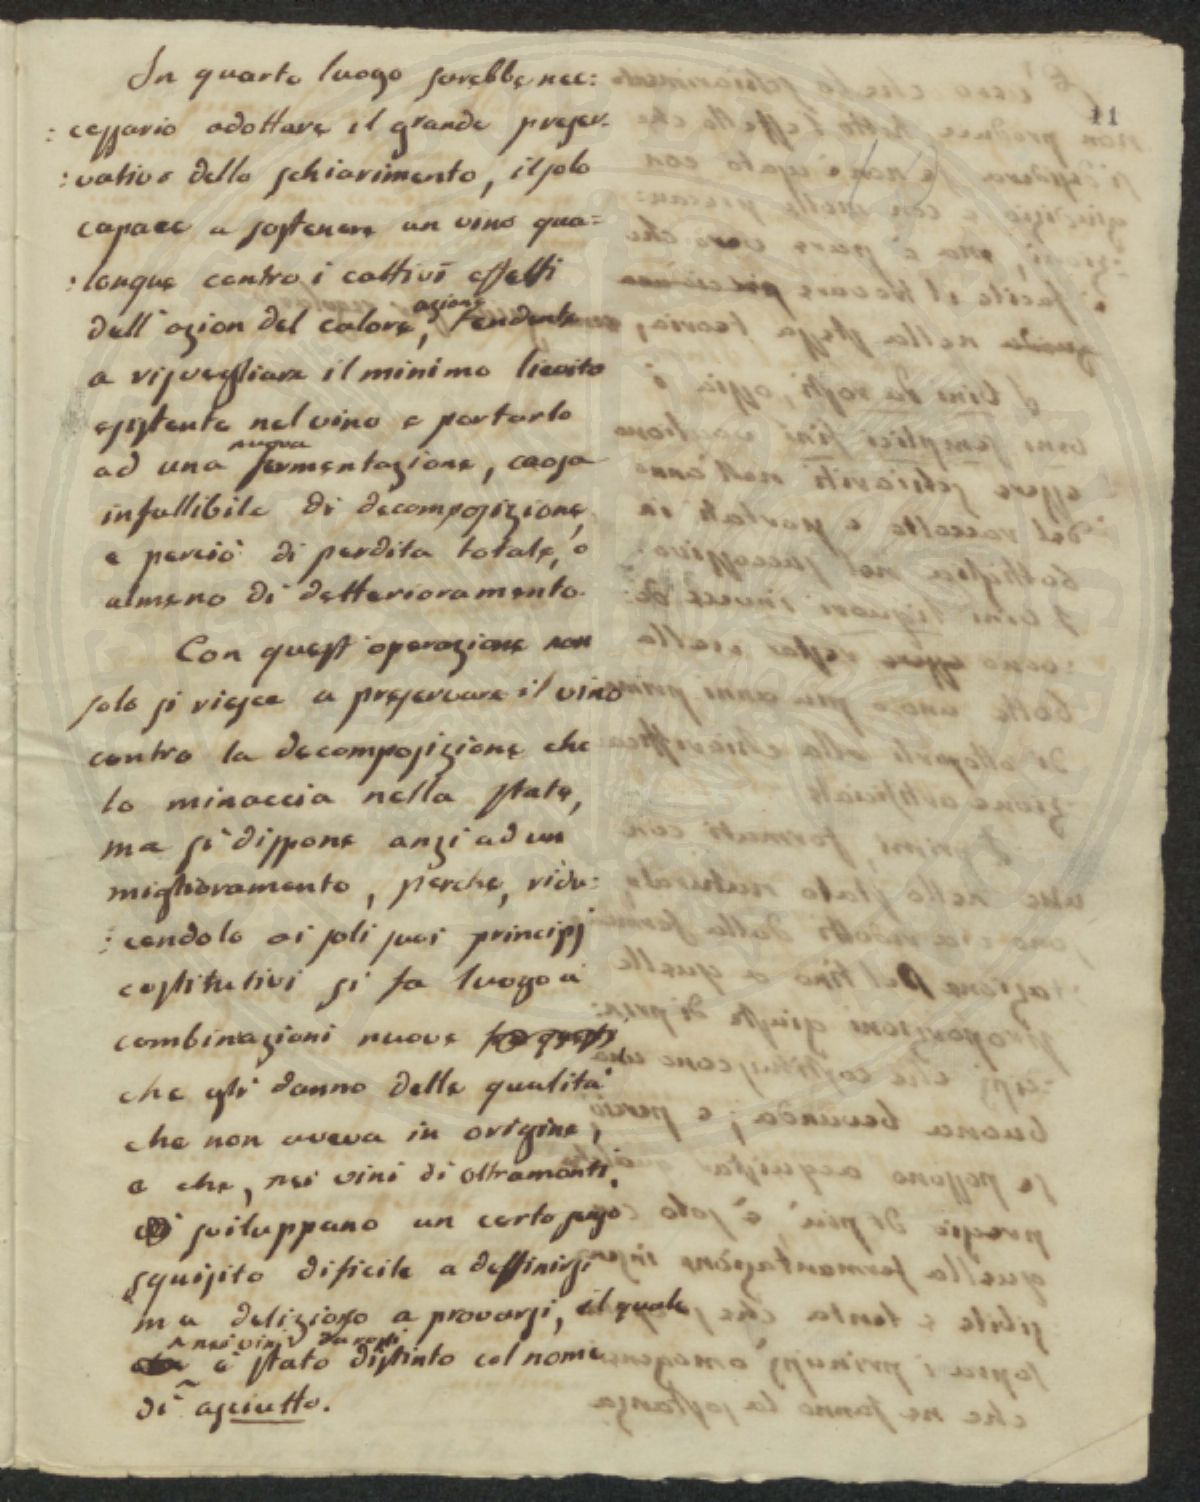 11
In quarto luogo sarebbe nec:
:cessario adottare il grande preser-
:vativo dello schiarimento, il solo
capace a sostenere un vino qua=
:lunque contro i cattivi effetti
dell'azion del calore, azione tendente
a risvegliare il minimo lievito
esistente nel vino e portarlo
ad una nuova fermentazione, causa
infallibile di decomposizione,
e perciò di perdita totale, o
almeno di detterioramento.
Con quest'operazione non
solo si riesce a preservare il vino
contro la decomposizione che
lo minaccia nella state,
ma si dispone anzi ad un
miglioramento, perche, ridu:
:cendolo ai soli suoi principj
costitutivi si fa luogo a
combinazioni nuove
che gli danno delle qualità
che non aveva in origine,
e che, nei vini di oltramonti,
sviluppano un certo sugo
squisito dificile a deffinirsi
ma delizioso a provarsi, il quale
nei vini da rosti è stato distinto col nome
di asciutto.